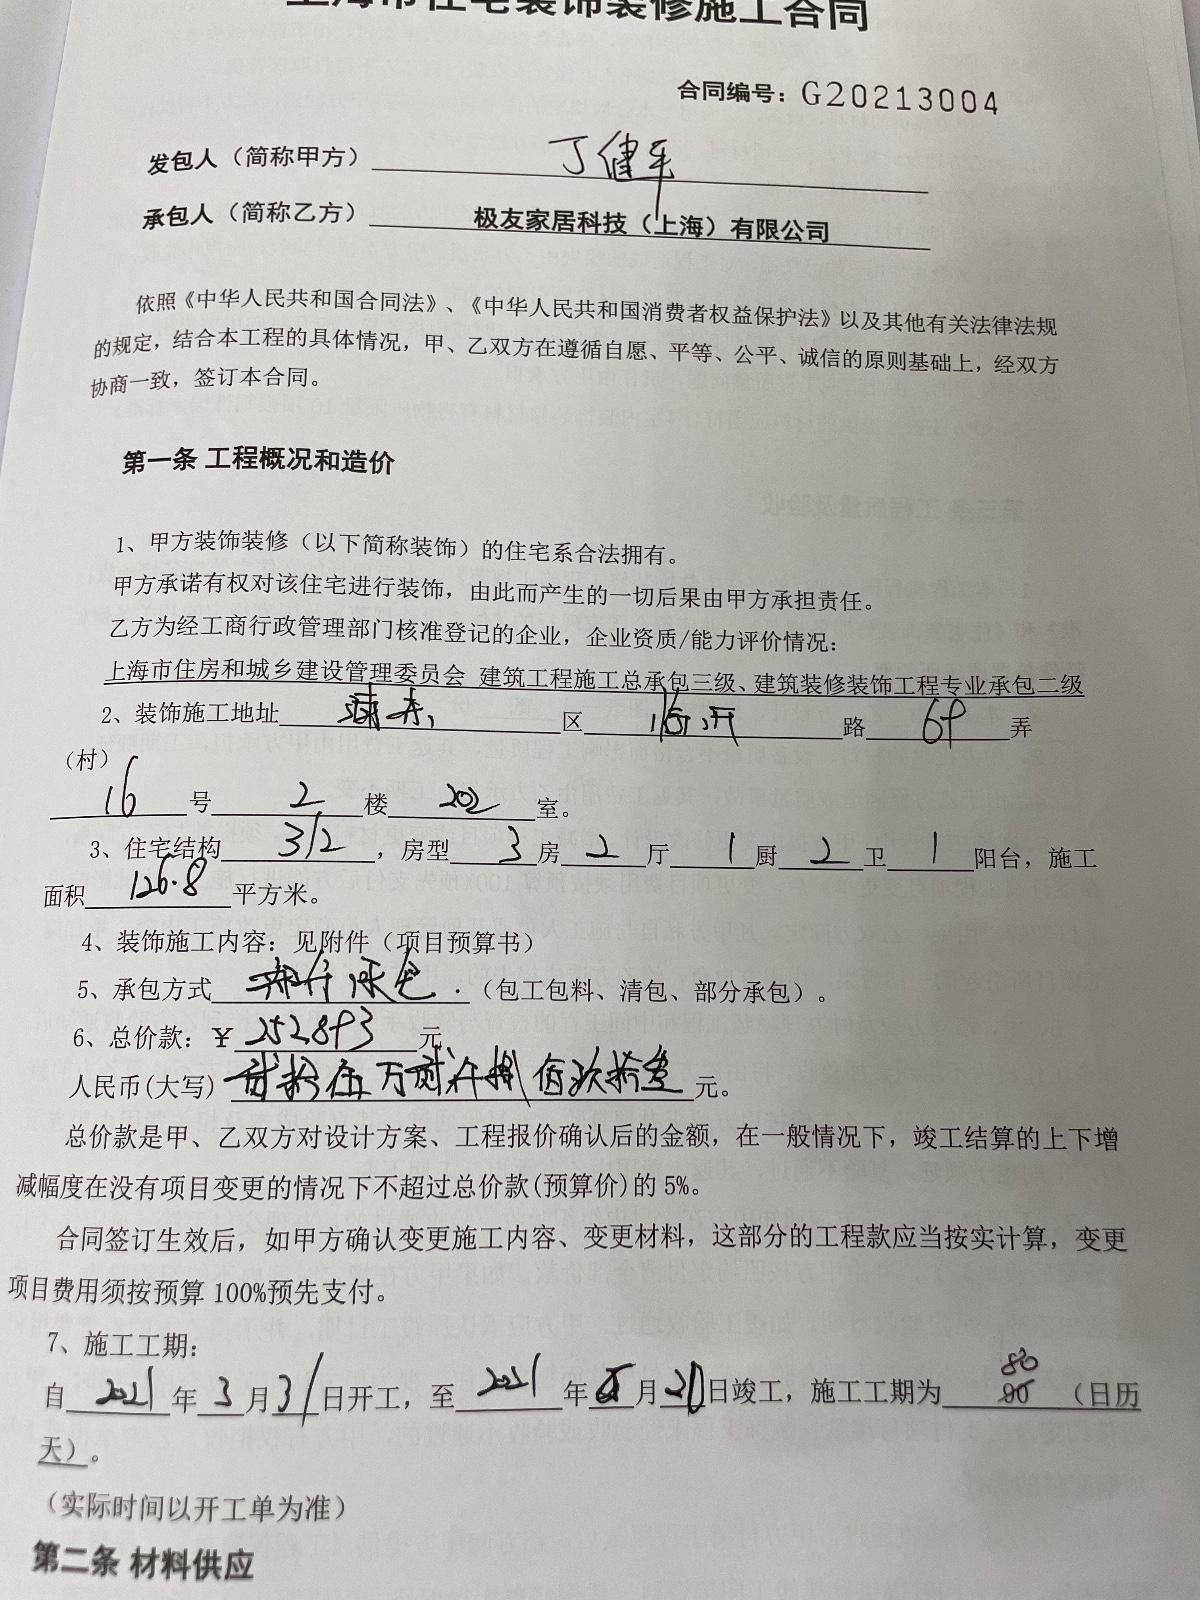 上海市住宅装饰装修施工合同
合同编号：G20213004
发包人（简称甲方）丁健平
承包人（简称乙方）极友家居科技（上海）有限公司
依照《中华人民共和国合同法》、《中华人民共和国消费者权益保护法》以及其他有关法律法规
的规定，结合本工程的具体情况，甲、乙双方在遵循自愿、平等、公平、诚信的原则基础上，经双方
协商一致，签订本合同。
第一条 工程概况和造价
1、甲方装饰装修（以下简称装饰）的住宅系合法拥有。
甲方承诺有权对该住宅进行装饰，由此而产生的一切后果由甲方承担责任。
乙方为经工商行政管理部门核准登记的企业，企业资质/能力评价情况：
上海市住房和城乡建设管理委员会 建筑工程施工总承包三级、建筑装修装饰工程专业承包二级
2、装饰施工地址 区 路 69 弄
（村）
16 号 2 楼 202 室。
3、住宅结构 312 ，房型 3 房 2 厅 1 厨 2 卫 1 阳台，施工
面积 126.8 平方米。
4、装饰施工内容：见附件（项目预算书）
5、承包方式 部分承包 .（包工包料、清包、部分承包）。
6、总价款：￥252893 元
人民币(大写) 贰拾伍万贰仟捌佰玖拾叁 元。
总价款是甲、乙双方对设计方案、工程报价确认后的金额，在一般情况下，竣工结算的上下增
减幅度在没有项目变更的情况下不超过总价款(预算价)的 5%。
合同签订生效后，如甲方确认变更施工内容、变更材料，这部分的工程款应当按实计算，变更
项目费用须按预算 100%预先支付。
7、施工工期：
80
自 2021 年 3 月 31 日开工，至 2021 年 月 20 日竣工，施工工期为 90 （日历
天）。
（实际时间以开工单为准）
第二条 材料供应